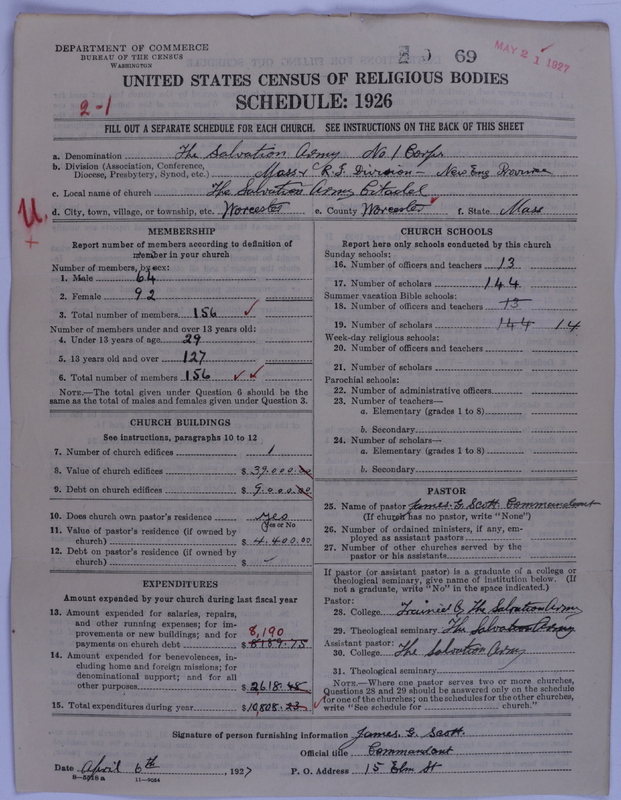 DEPARTMENT OF COMMERCE
BUREAU OF THE CENSUS
WASHINGTON
69
MAY 21 1927
UNITED STATES CENSUS OF RELIGIOUS BODIES
2-1
SCHEDULE: 1926
FILL OUT A SEPARATE SCHEDULE FOR EACH CHURCH. SEE INSTRUCTIONS ON THE BACK OF THIS SHEET
a. Denomination The Salvation Army No 1 Corps
b. Division (Association, Conference, Diocese, Presbytery, Synod, etc.) Mass & R.I. Division - New Eng Province
c. Local name of church The Salvation Army Citadel
d. City, town, village, or township, etc. Worcester e. County Worcester f. State Mass
U.
MEMBERSHIP
Report number of members according to definition of member in your church
Number of members, by sex:
1. Male 64
2. Female 92
3. Total number of members 156
Number of members under and over 13 years old:
4. Under 13 years of age 29
5. 13 years old and over 127
6. Total number of members 156
NOTE.—The total given under Question 6 should be the same as the total of males and females given under Question 3.
CHURCH BUILDINGS
See instructions, paragraphs 10 to 12
7. Number of church edifices 1
8. Value of church edifices $ 39.000.00
9. Debt on church edifices $ 9.000.00
10. Does church own pastor's residence yes
Yes or No
11. Value of pastor's residence (if owned by church) $ 4.400.00
12. Debt on pastor's residence (if owned by church) $
EXPENDITURES
Amount expended by your church during last fiscal year
13. Amount expended for salaries, repairs, and other running expenses; for improvements or new buildings; and for payments on church debt $ 8189.75
8,190
14. Amount expended for benevolences, including home and foreign missions; for denominational support; and for all other purposes $ 2618.48
15. Total expenditures during year $ 10,808.23
CHURCH SCHOOLS
Report here only schools conducted by this church
Sunday schools:
16. Number of officers and teachers 13
17. Number of scholars 144
Summer vacation Bible schools:
18. Number of officers and teachers 13
19. Number of scholars 144 14
Week-day religious schools:
20. Number of officers and teachers
21. Number of scholars
Parochial schools:
22. Number of administrative officers
23. Number of teachers—
a. Elementary (grades 1 to 8)
b. Secondary
24. Number of scholars—
a. Elementary (grades 1 to 8)
b. Secondary
PASTOR
25. Name of pastor James. G. Scott. Commandant
(If church has no pastor, write "None")
26. Number of ordained ministers, if any, employed as assistant pastors
27. Number of other churches served by the pastor or his assistants
If pastor (or assistant pastor) is a graduate of a college or theological seminary, give name of institution below. (If not a graduate, write "No" in the space indicated.)
Pastor:
28. College Trained by The Salvation Army
29. Theological seminary The Salvation Army
Assistant pastor:
30. College The Salvation Army
31. Theological seminary
NOTE.—Where one pastor serves two or more churches, Questions 28 and 29 should be answered only on the schedule for one of the churches; on the schedules for the other churches, write "See schedule for church."
Signature of person furnishing information James. G. Scott.
Official title Commandant
Date April 6th, 1927 P. O. Address 15 Elm St